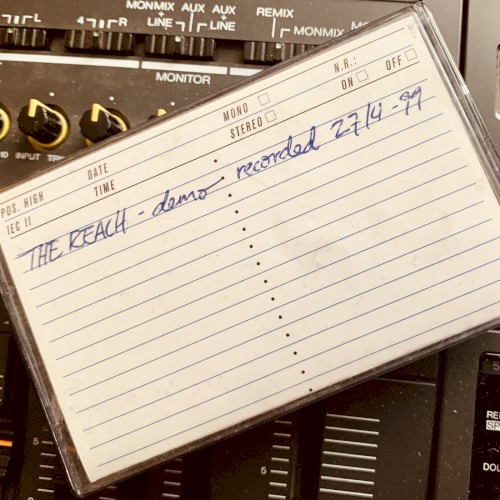 MONMIX AUX AUX
4 R LINE LINE
REMIX
MONMIX
MONITOR
INPUT
N.R.:
MONO ON OFF
STEREO
DATE
TIME
POS. HIGH
IEC II
THE REACH - demo recorded 27/4-99
5
5
5